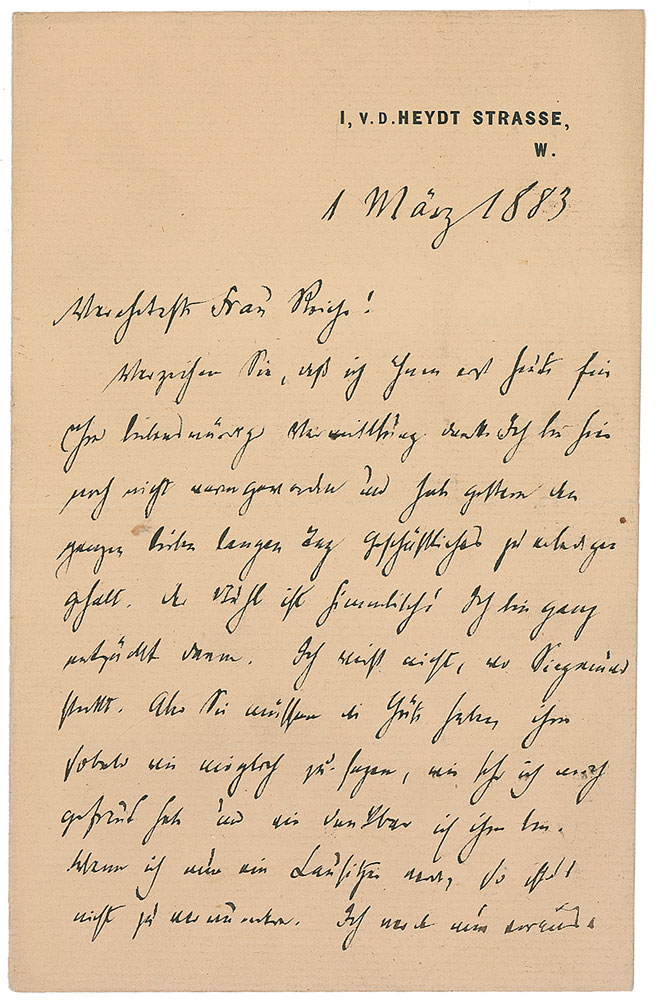 I, V.D. HEYDT STRASSE,
W.
1 März 1883
Verehrteste Frau Reichs!
Verzeihen Sie, daß ich Ihnen erst heute für
Ihre liebenswürdige Vermittlung danke. Ich bin hier
noch nicht warm geworden und habe gestern den
ganzen lieben langen Tag Geschäftliches zu erledigen
gehabt. Der Stuhl ist himmlisch! Ich bin ganz
entzückt davon. Ich weiß nicht, wo Siegmund
steckt. Also Sie müssen die Güte haben, ihm
sobald wie möglich zu sagen, wie sehr ich mich
gefreut habe und wie dankbar ich ihm bin.
Wenn ich nun ein Lausitzer werde, so ist es
nicht zu verwundern. Ich werde nun